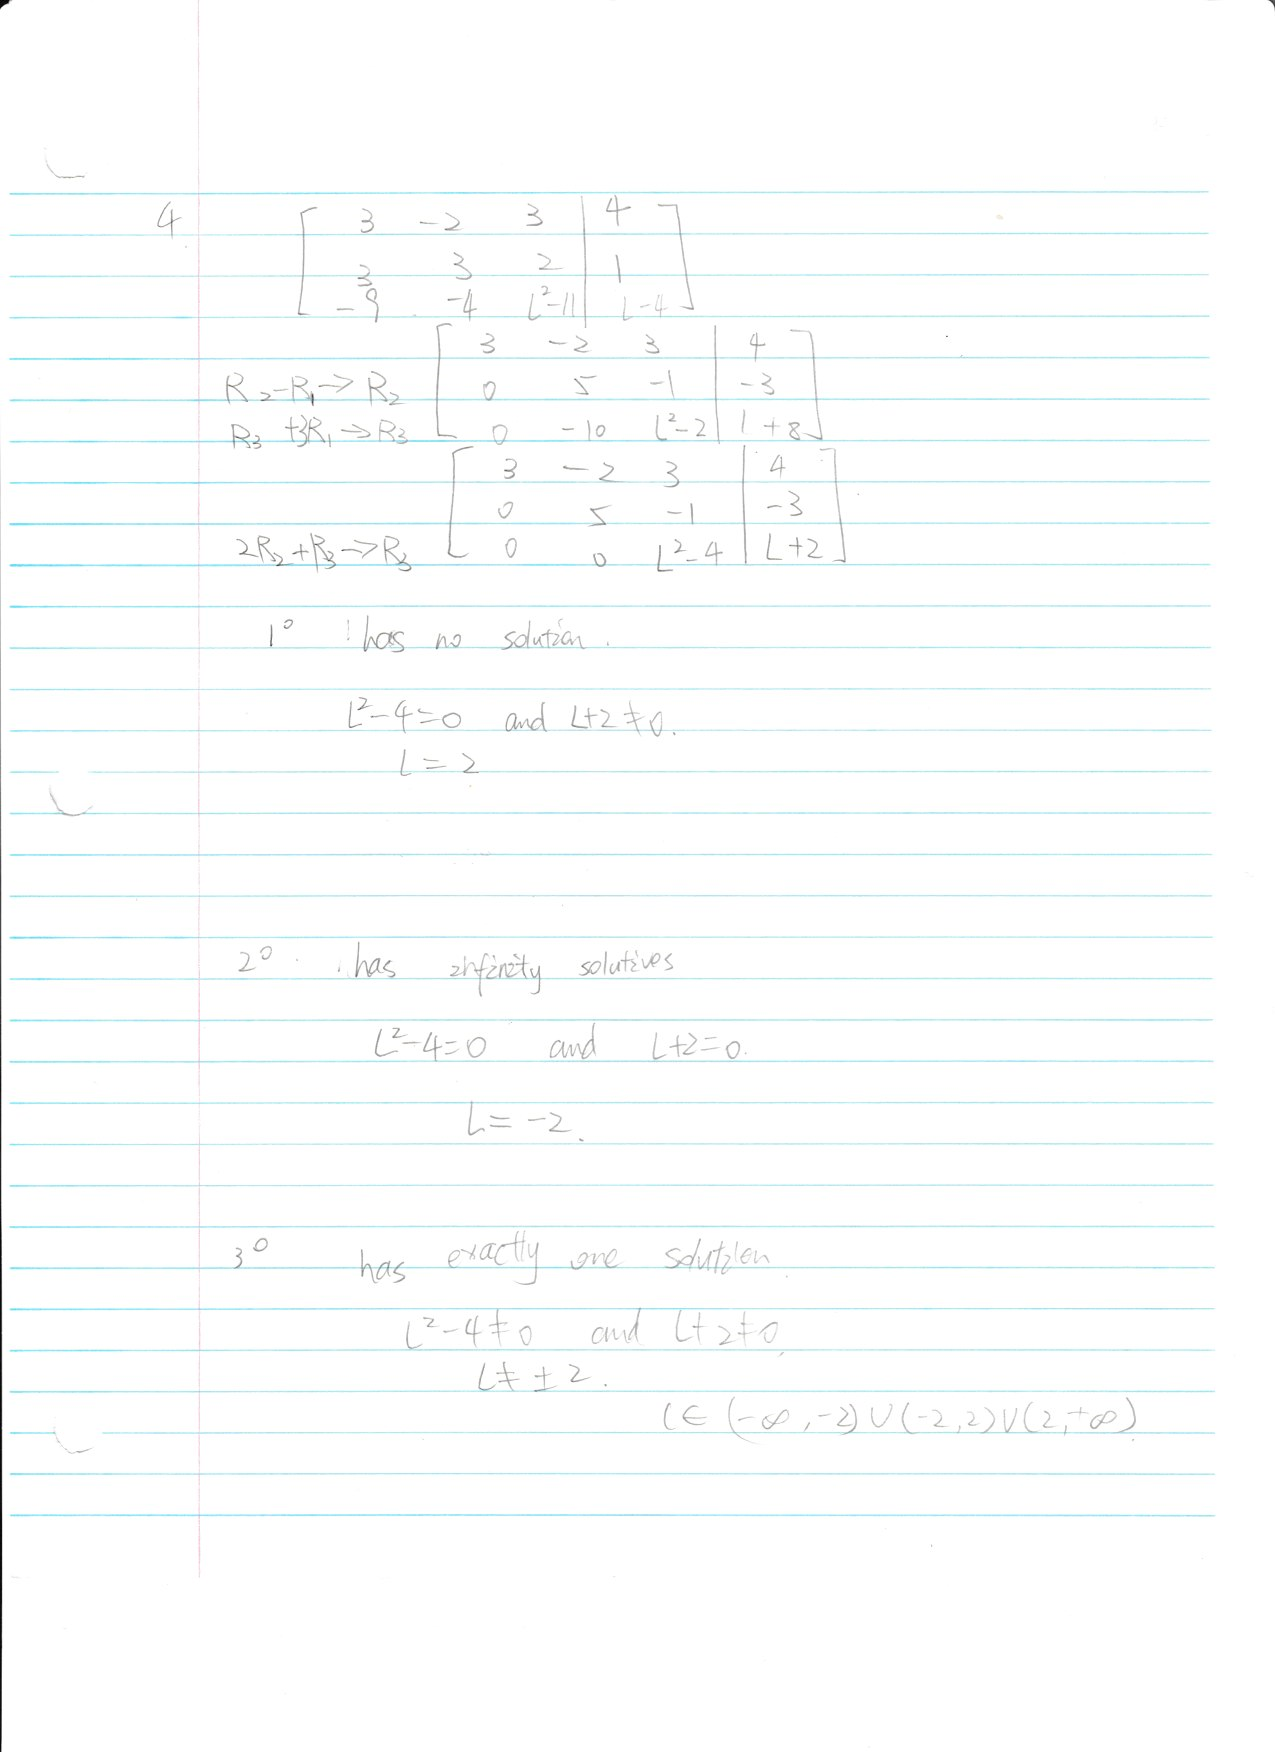 4
[ 3 -2 3 | 4 ]
[ 3 3 2 | 1 ]
[ -9 -4 L²-11 | L-4 ]
[ 3 -2 3 | 4 ]
R₂-R₁→R₂ [ 0 5 -1 | -3 ]
R₃+3R₁→R₃ [ 0 -10 L²-2 | l+8 ]
[ 3 -2 3 | 4 ]
[ 0 5 -1 | -3 ]
2R₂+R₃→R₃ [ 0 0 L²-4 | L+2 ]
1° has no solution.
L²-4=0 and L+2≠0.
L=2
2° has infinity solutives
L²-4=0 and L+2=0.
L=-2.
3° has exactly one solution
L²-4≠0 and L+2≠0
L≠±2.
L∈(-∞,-2)∪(-2,2)∪(2,+∞)